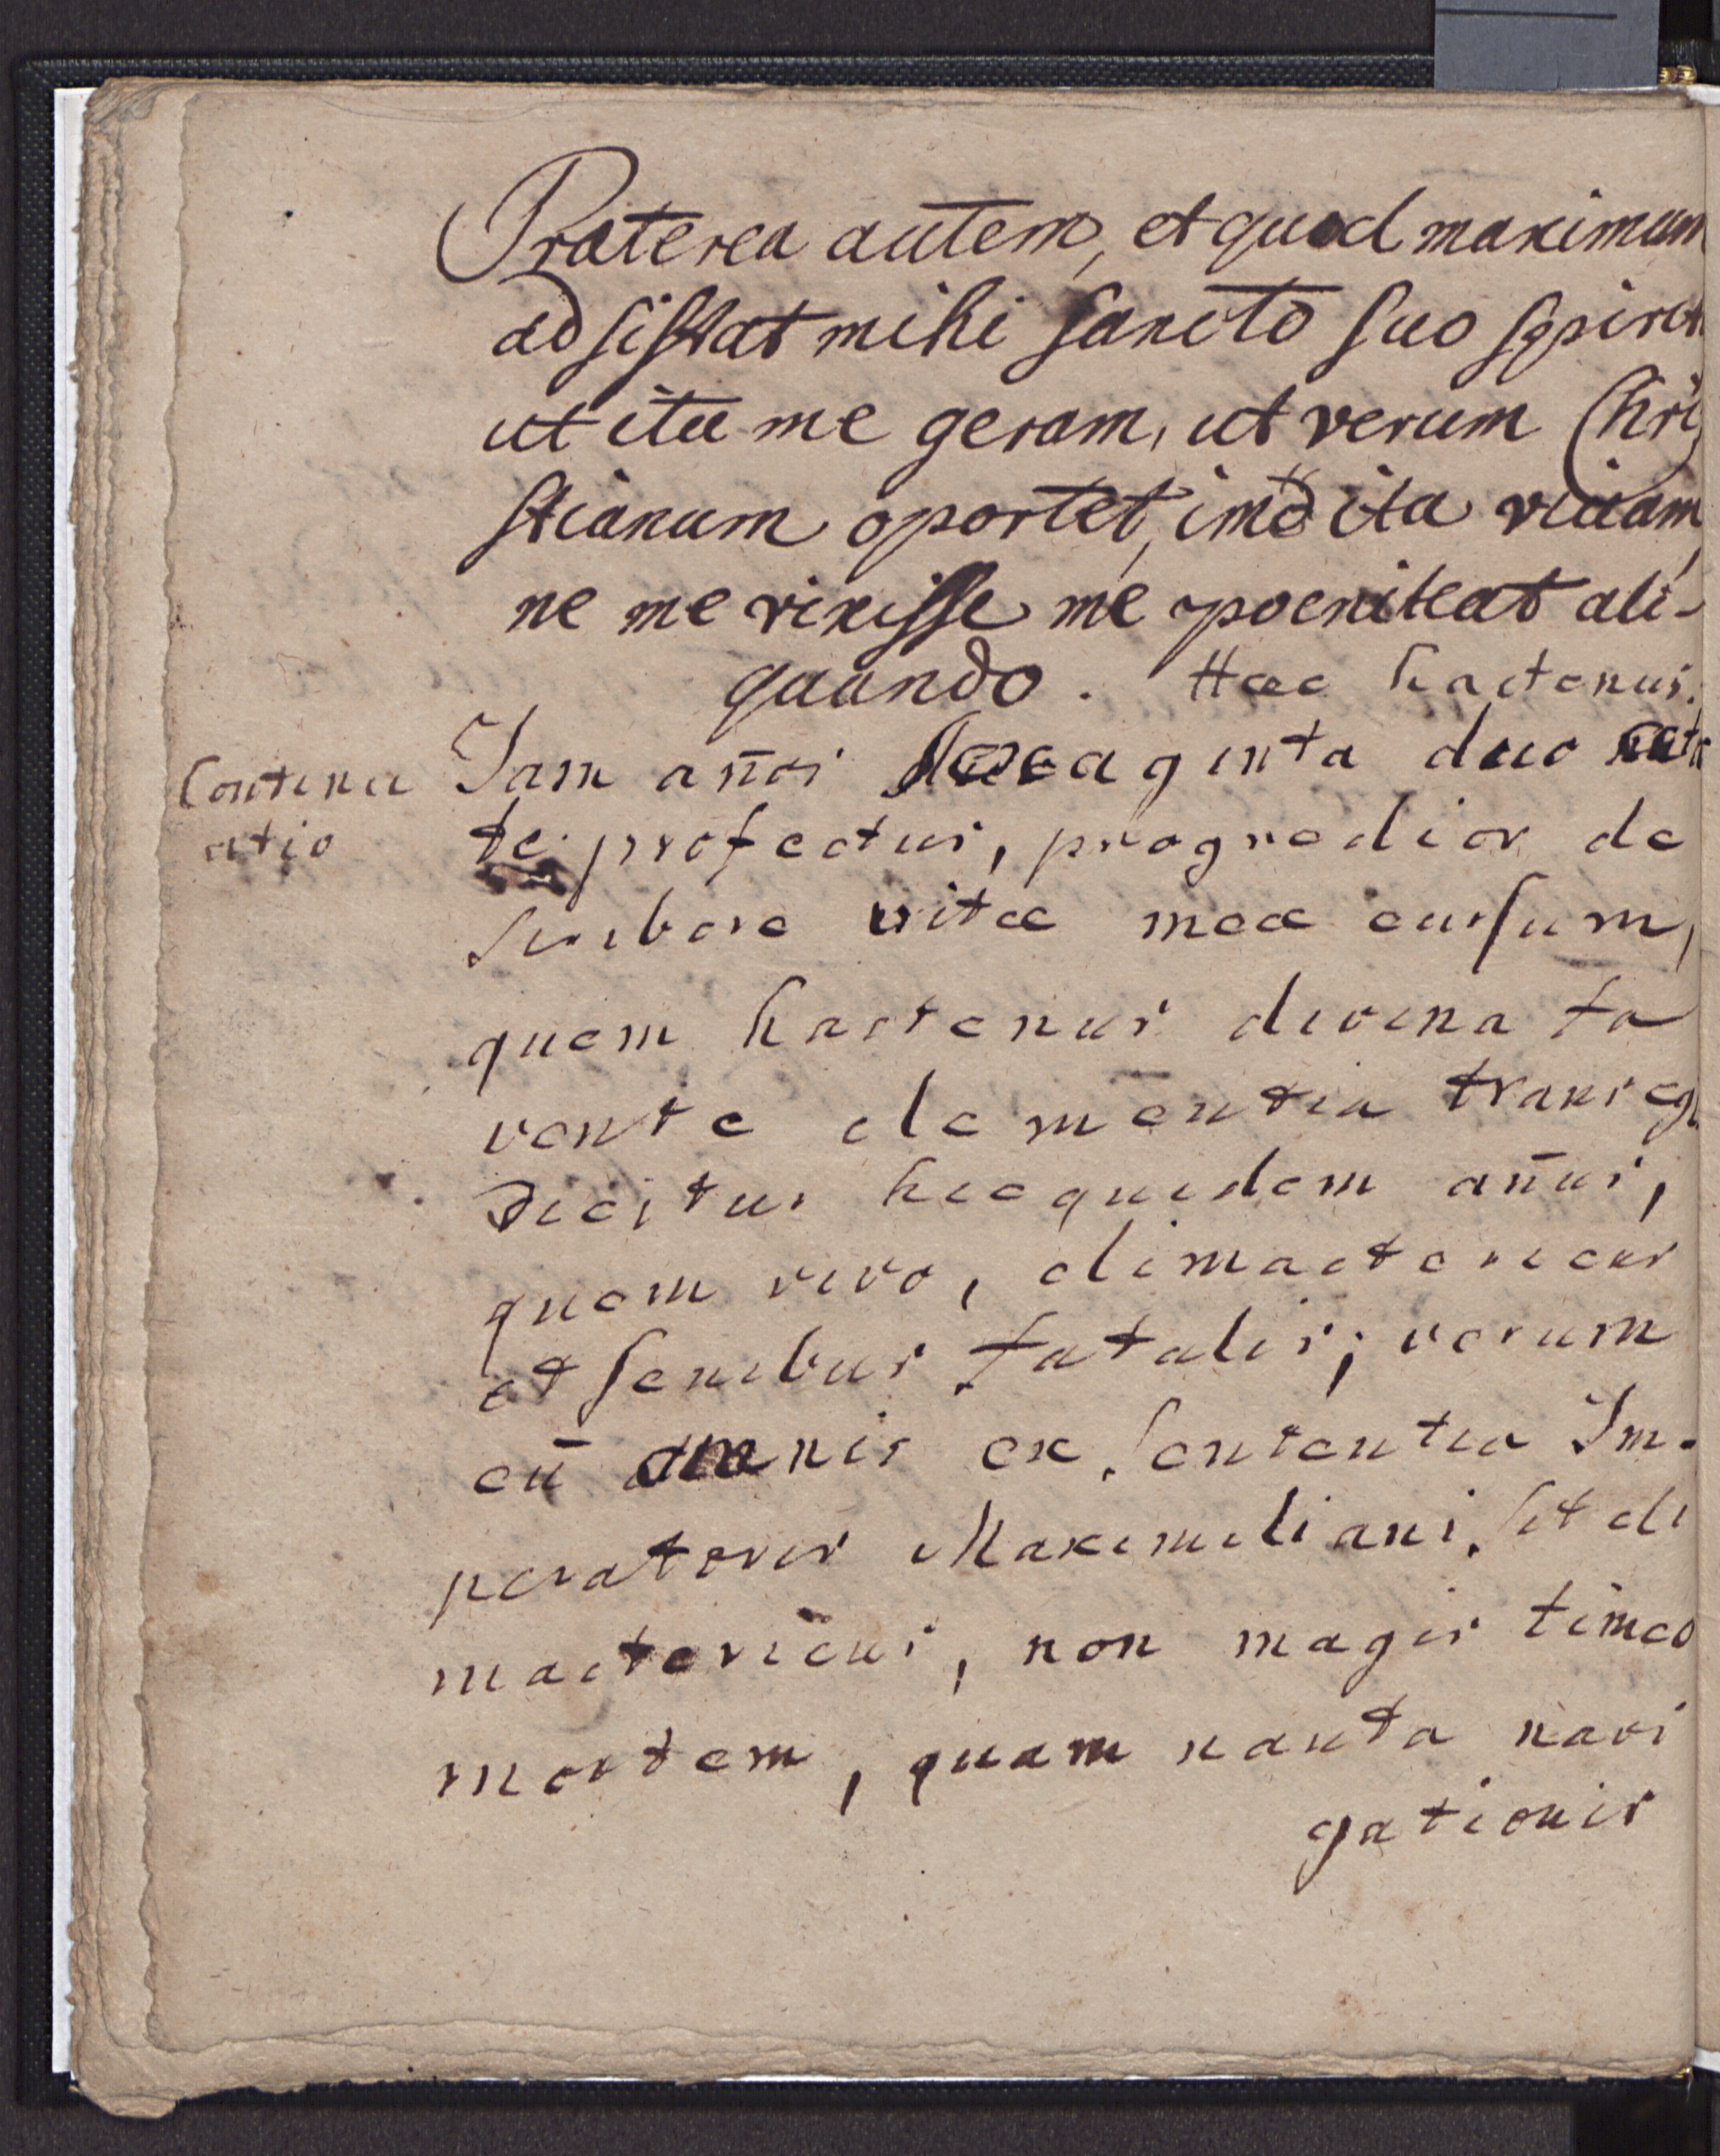 Præterea autem, et quod maximum
adsistat mihi sancto suo spiritu
ut ita me geram, ut verum Chri
stianum oportet, imò ita vivam,
ne me vixisse me poeniteat ali-
quando. Hæc hactenus.
Continu
atio
Jam años sexaginta duo
profectus, progredior de
scribere vitæ meæ cursum,
quem hactenus divina fa
vente clementia transegi
Dicitur hicquidem añus,
quem vivo, climactericus
et senibus fatalis; verum
cū omnis ex sententia Im-
peratoris Maximiliani sit cli
mactericus, non magis timeo
mortem, quam nauta navi
gationis